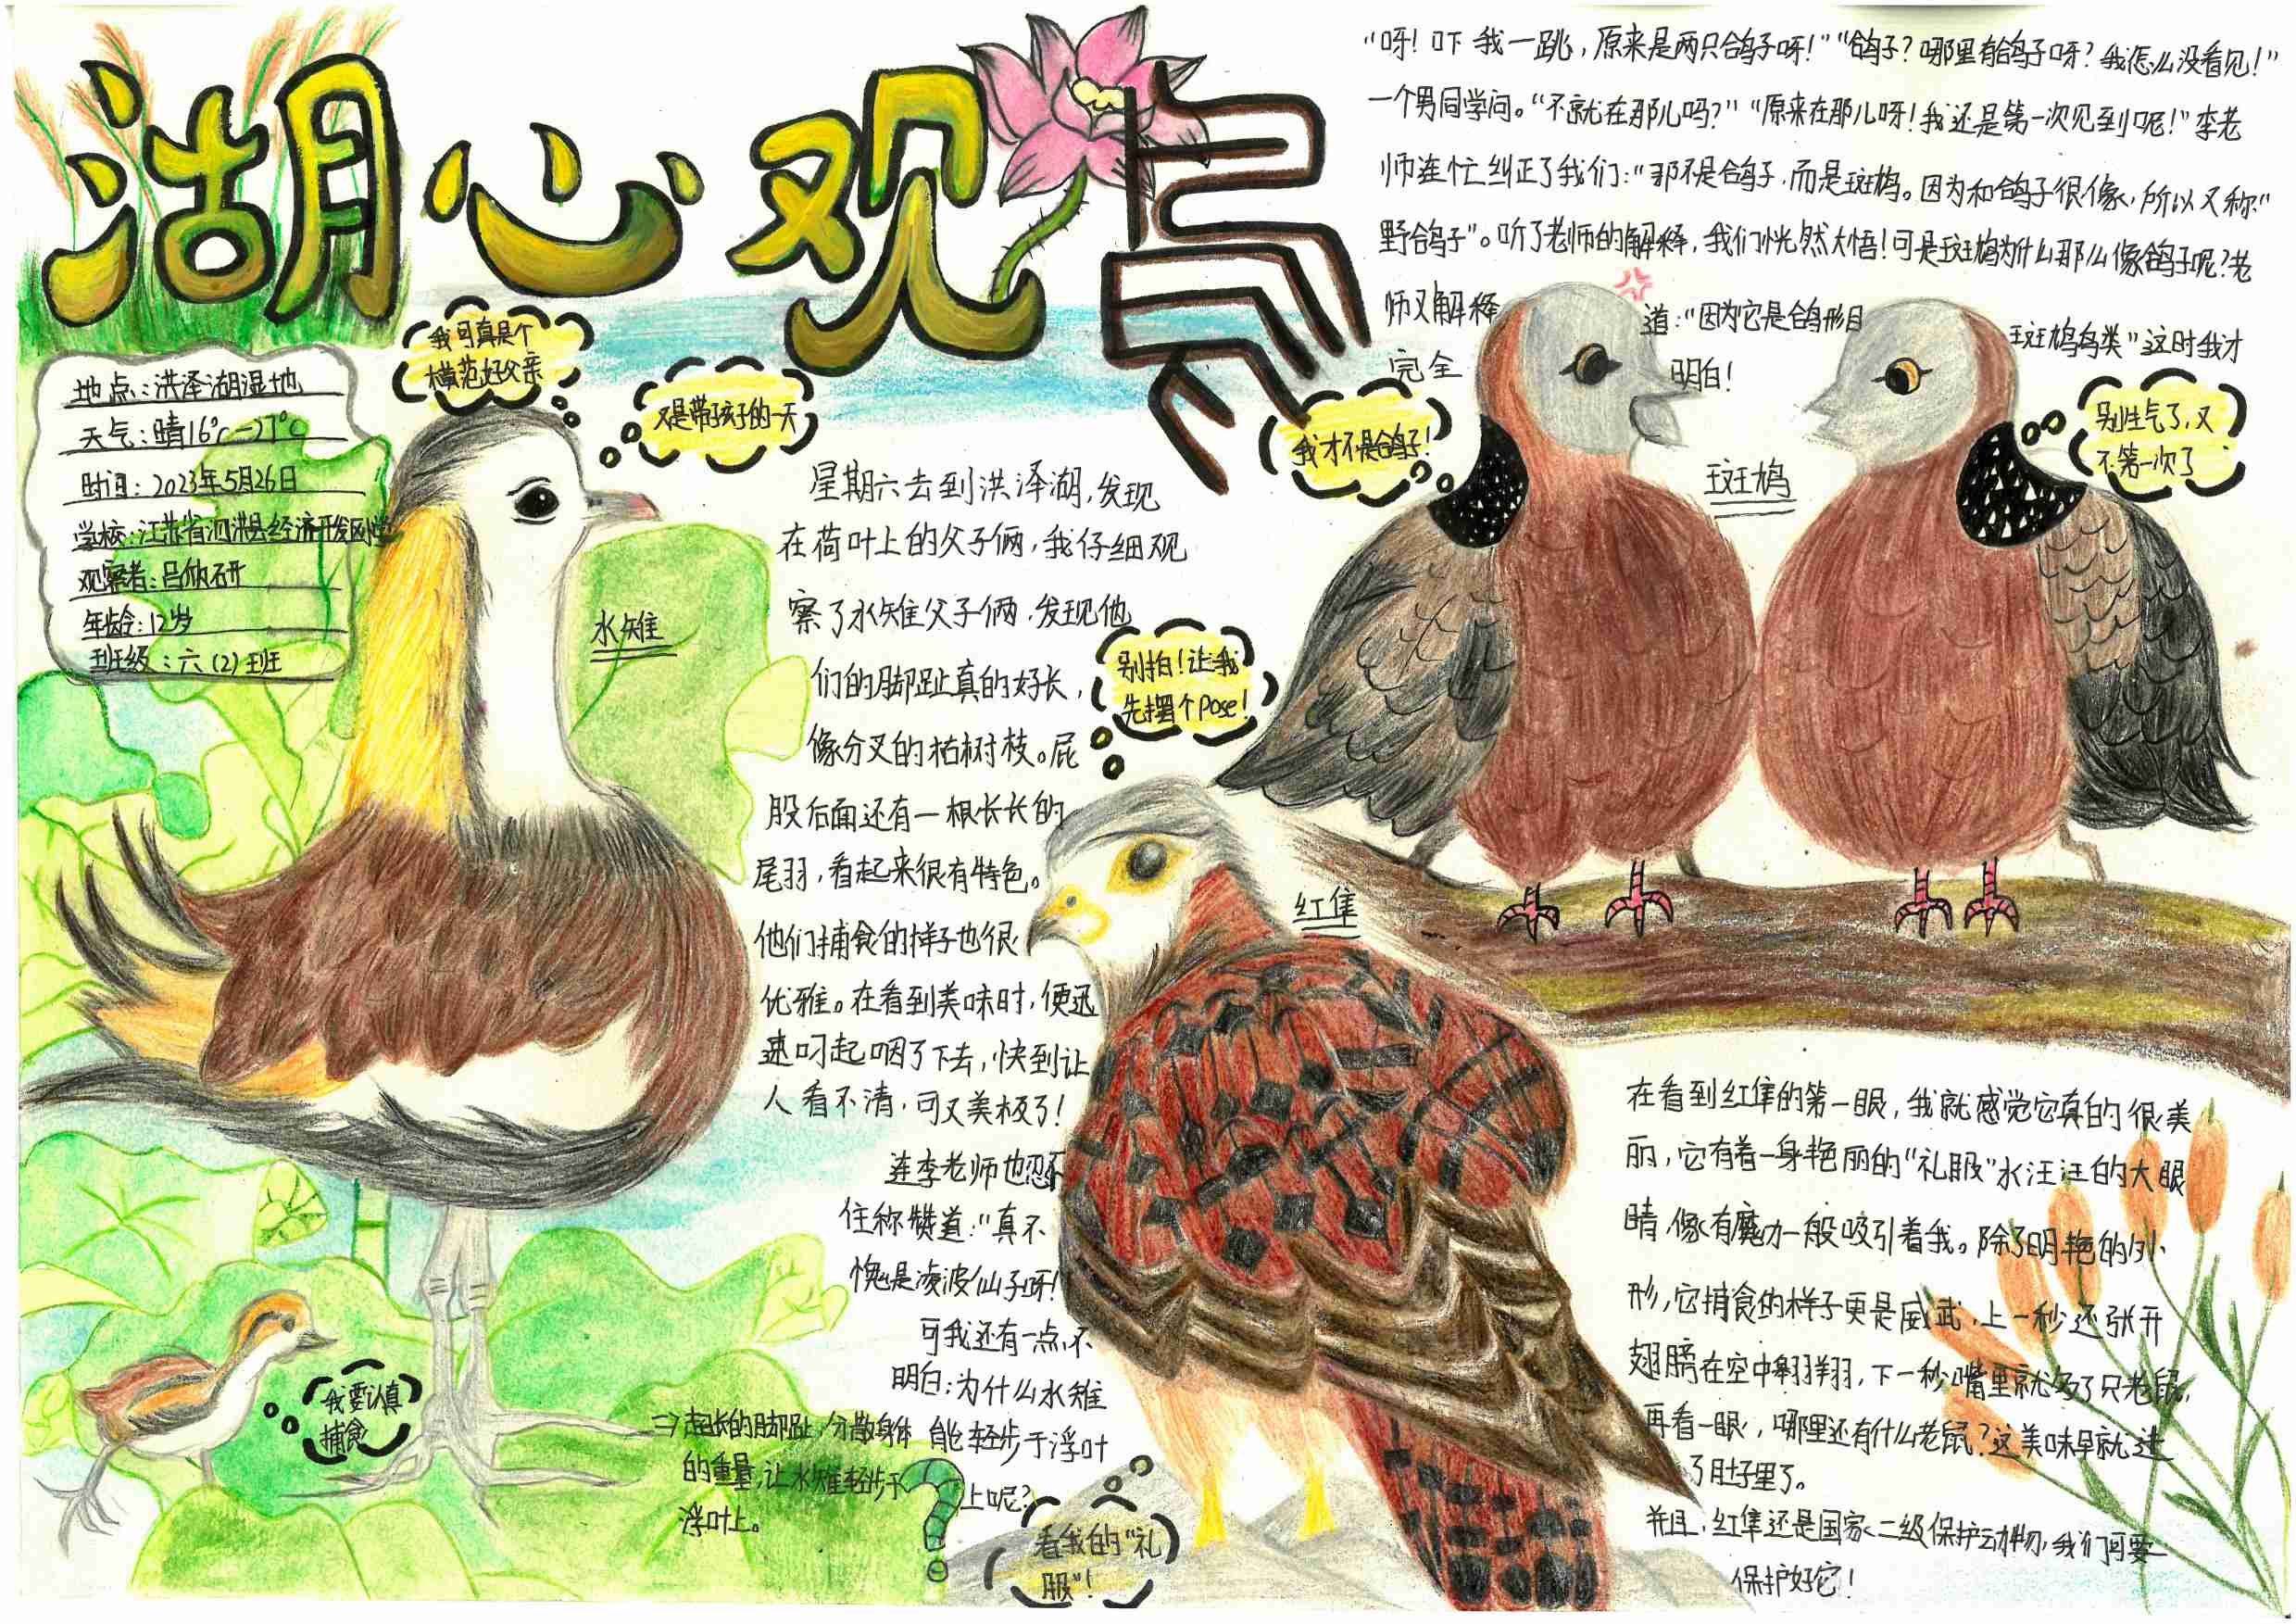 湖心观鸟
地点:洪泽湖湿地
天气:晴16℃-27℃
时间:2023年5月26日
学校:江苏省泗洪县经济开发区小学
观察者:吕欣研
年龄:12岁
班级:六(2)班
我可真是个
模范好父亲
又是带孩子的一天
水雉
星期六去到洪泽湖,发现
在荷叶上的父子俩,我仔细观
察了水雉父子俩,发现他
们的脚趾真的好长,
像分叉的枯树枝。屁
股后面还有一根长长的
尾羽,看起来很有特色。
他们捕食的样子也很
优雅。在看到美味时,便迅
速叼起咽了下去,快到让
人看不清,可又美极了!
连李老师也忍不
住称赞道:“真不
愧是凌波仙子呀!
可我还有一点不
明白:为什么水雉
能轻步于浮叶
上呢?
⇒超长的脚趾,分散身体
的重量,让水雉轻步于
浮叶上。
我要认真
捕食
“呀!吓我一跳,原来是两只鸽子呀!”“鸽子?哪里有鸽子呀?我怎么没看见!”
一个男同学问。“不就在那儿吗?”“原来在那儿呀!我还是第一次见到呢!”李老
师连忙纠正了我们:“那不是鸽子,而是斑鸠。因为和鸽子很像,所以又称“
野鸽子”。听了老师的解释,我们恍然大悟!可是斑鸠为什么那么像鸽子呢?老
师又解释道:“因为它是鸽形目斑鸠鸟类”这时我才
完全明白!
我才不是鸽子!
斑鸠
别生气了,又
不第一次了
别拍!让我
先摆个pose!
红隼
在看到红隼的第一眼,我就感觉它真的很美
丽,它有着一身艳丽的“礼服”水汪汪的大眼
睛,像有魔力一般吸引着我。除了明艳的外
形,它捕食的样子更是威武,上一秒还张开
翅膀在空中翱翔,下一秒嘴里就多了只老鼠,
再看一眼,哪里还有什么老鼠?这美味早就进
了肚子里了。
并且,红隼还是国家二级保护动物,我们可要
保护好它!
看我的“礼
服”!